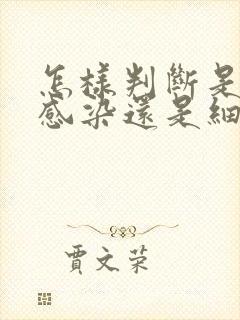 怎樣判斷是
感染還是細
賈文榮